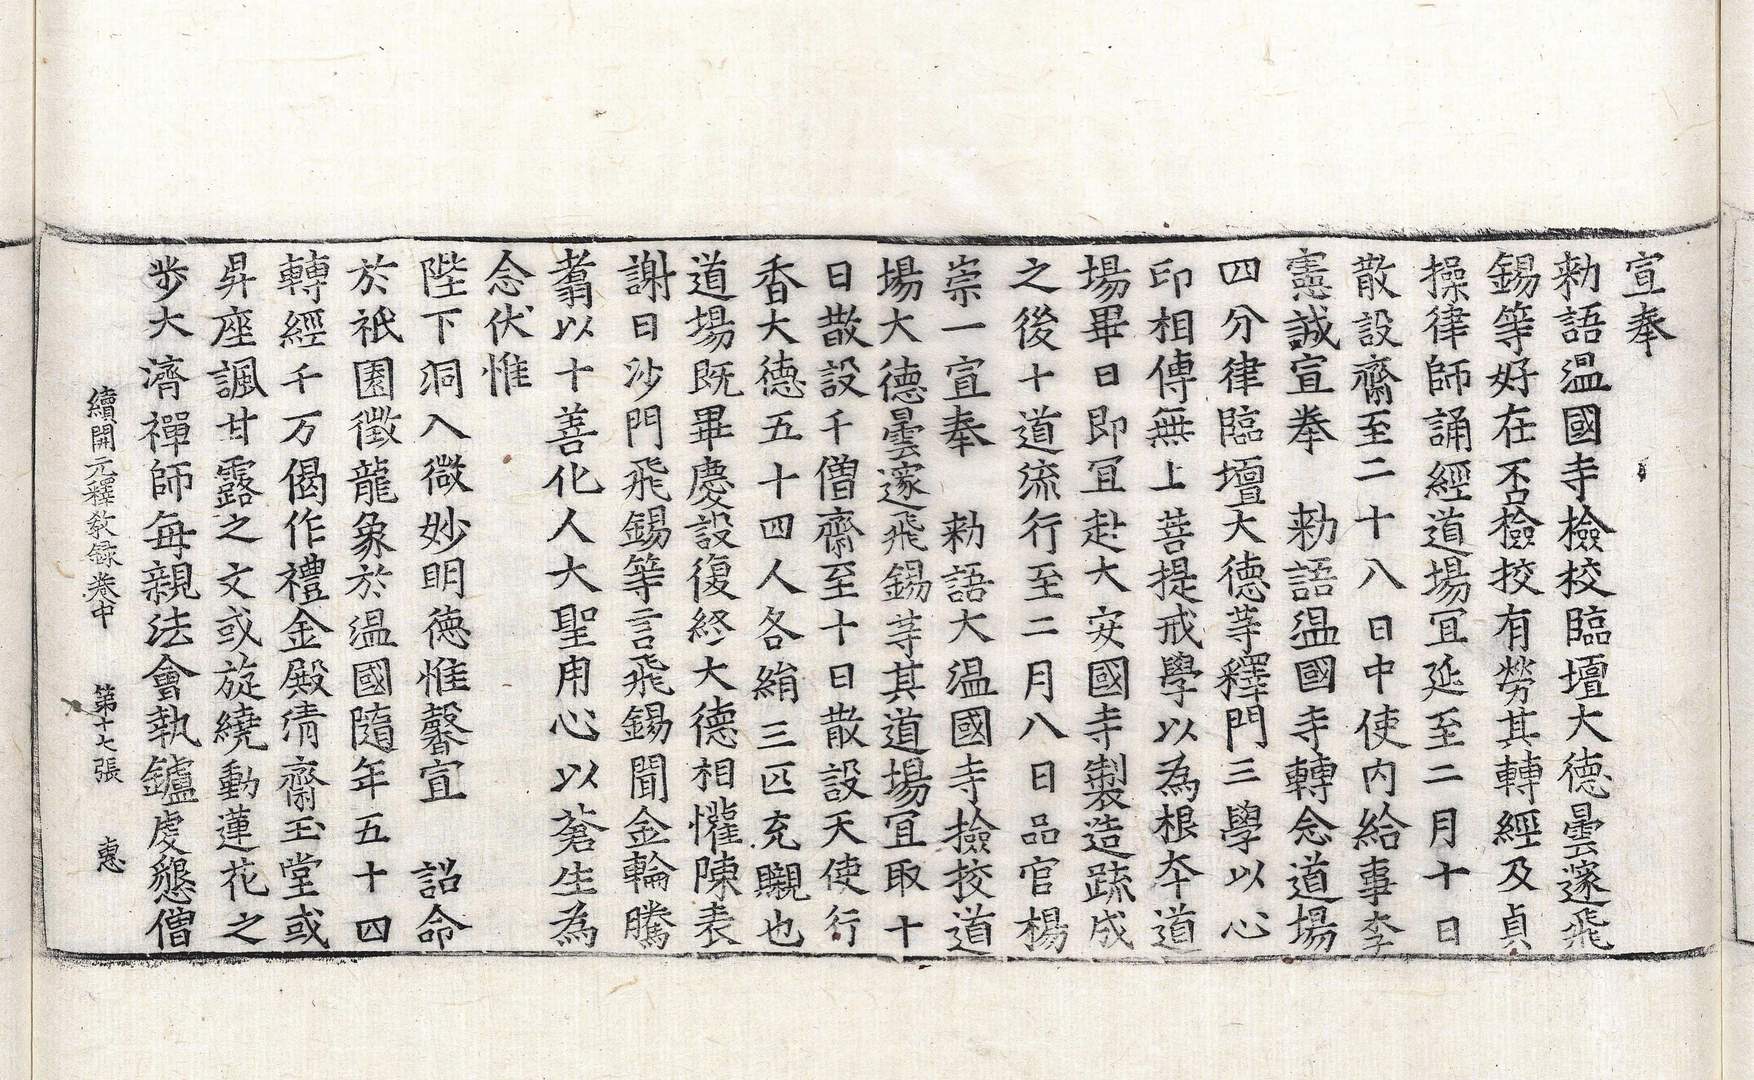 宣奉
勑語温國寺檢校臨壇大德曇邃飛
錫等好在否檢挍有勞其轉經及貞
操律師誦經道場冝延至二月十日
散設齋至二十八日中使內給事李
憲誠宣奉　勑語温國寺轉念道場
四分律臨壇大德䓁釋門三學以心
印相傳無上菩提戒學以為根夲道
場畢日即冝赴大安國寺製造䟽成
之後十道流行至二月八日品官楊
崇一宣奉　勑語大温國寺撿挍道
場大德曇邃飛錫䓁其道場冝取十
日散設千僧齋至十日散設天使行
香大德五十四人各絹三匹充䞋也
道場旣畢慶設復終大德相懽陳表
謝曰沙門飛錫等言飛錫聞金輪騰
翥以十善化人大聖用心以蒼生為
念伏惟
陛下洞入微妙明德惟馨宣　詔命
於祇園徵龍象於温國隨年五十四
轉經千万偈作禮金殿清齋玉堂或
昇座諷甘露之文或旋繞動蓮花之
步大濟禪師每親法會執鑪虔懇僧
續開元釋教録卷中　第十七張　惠